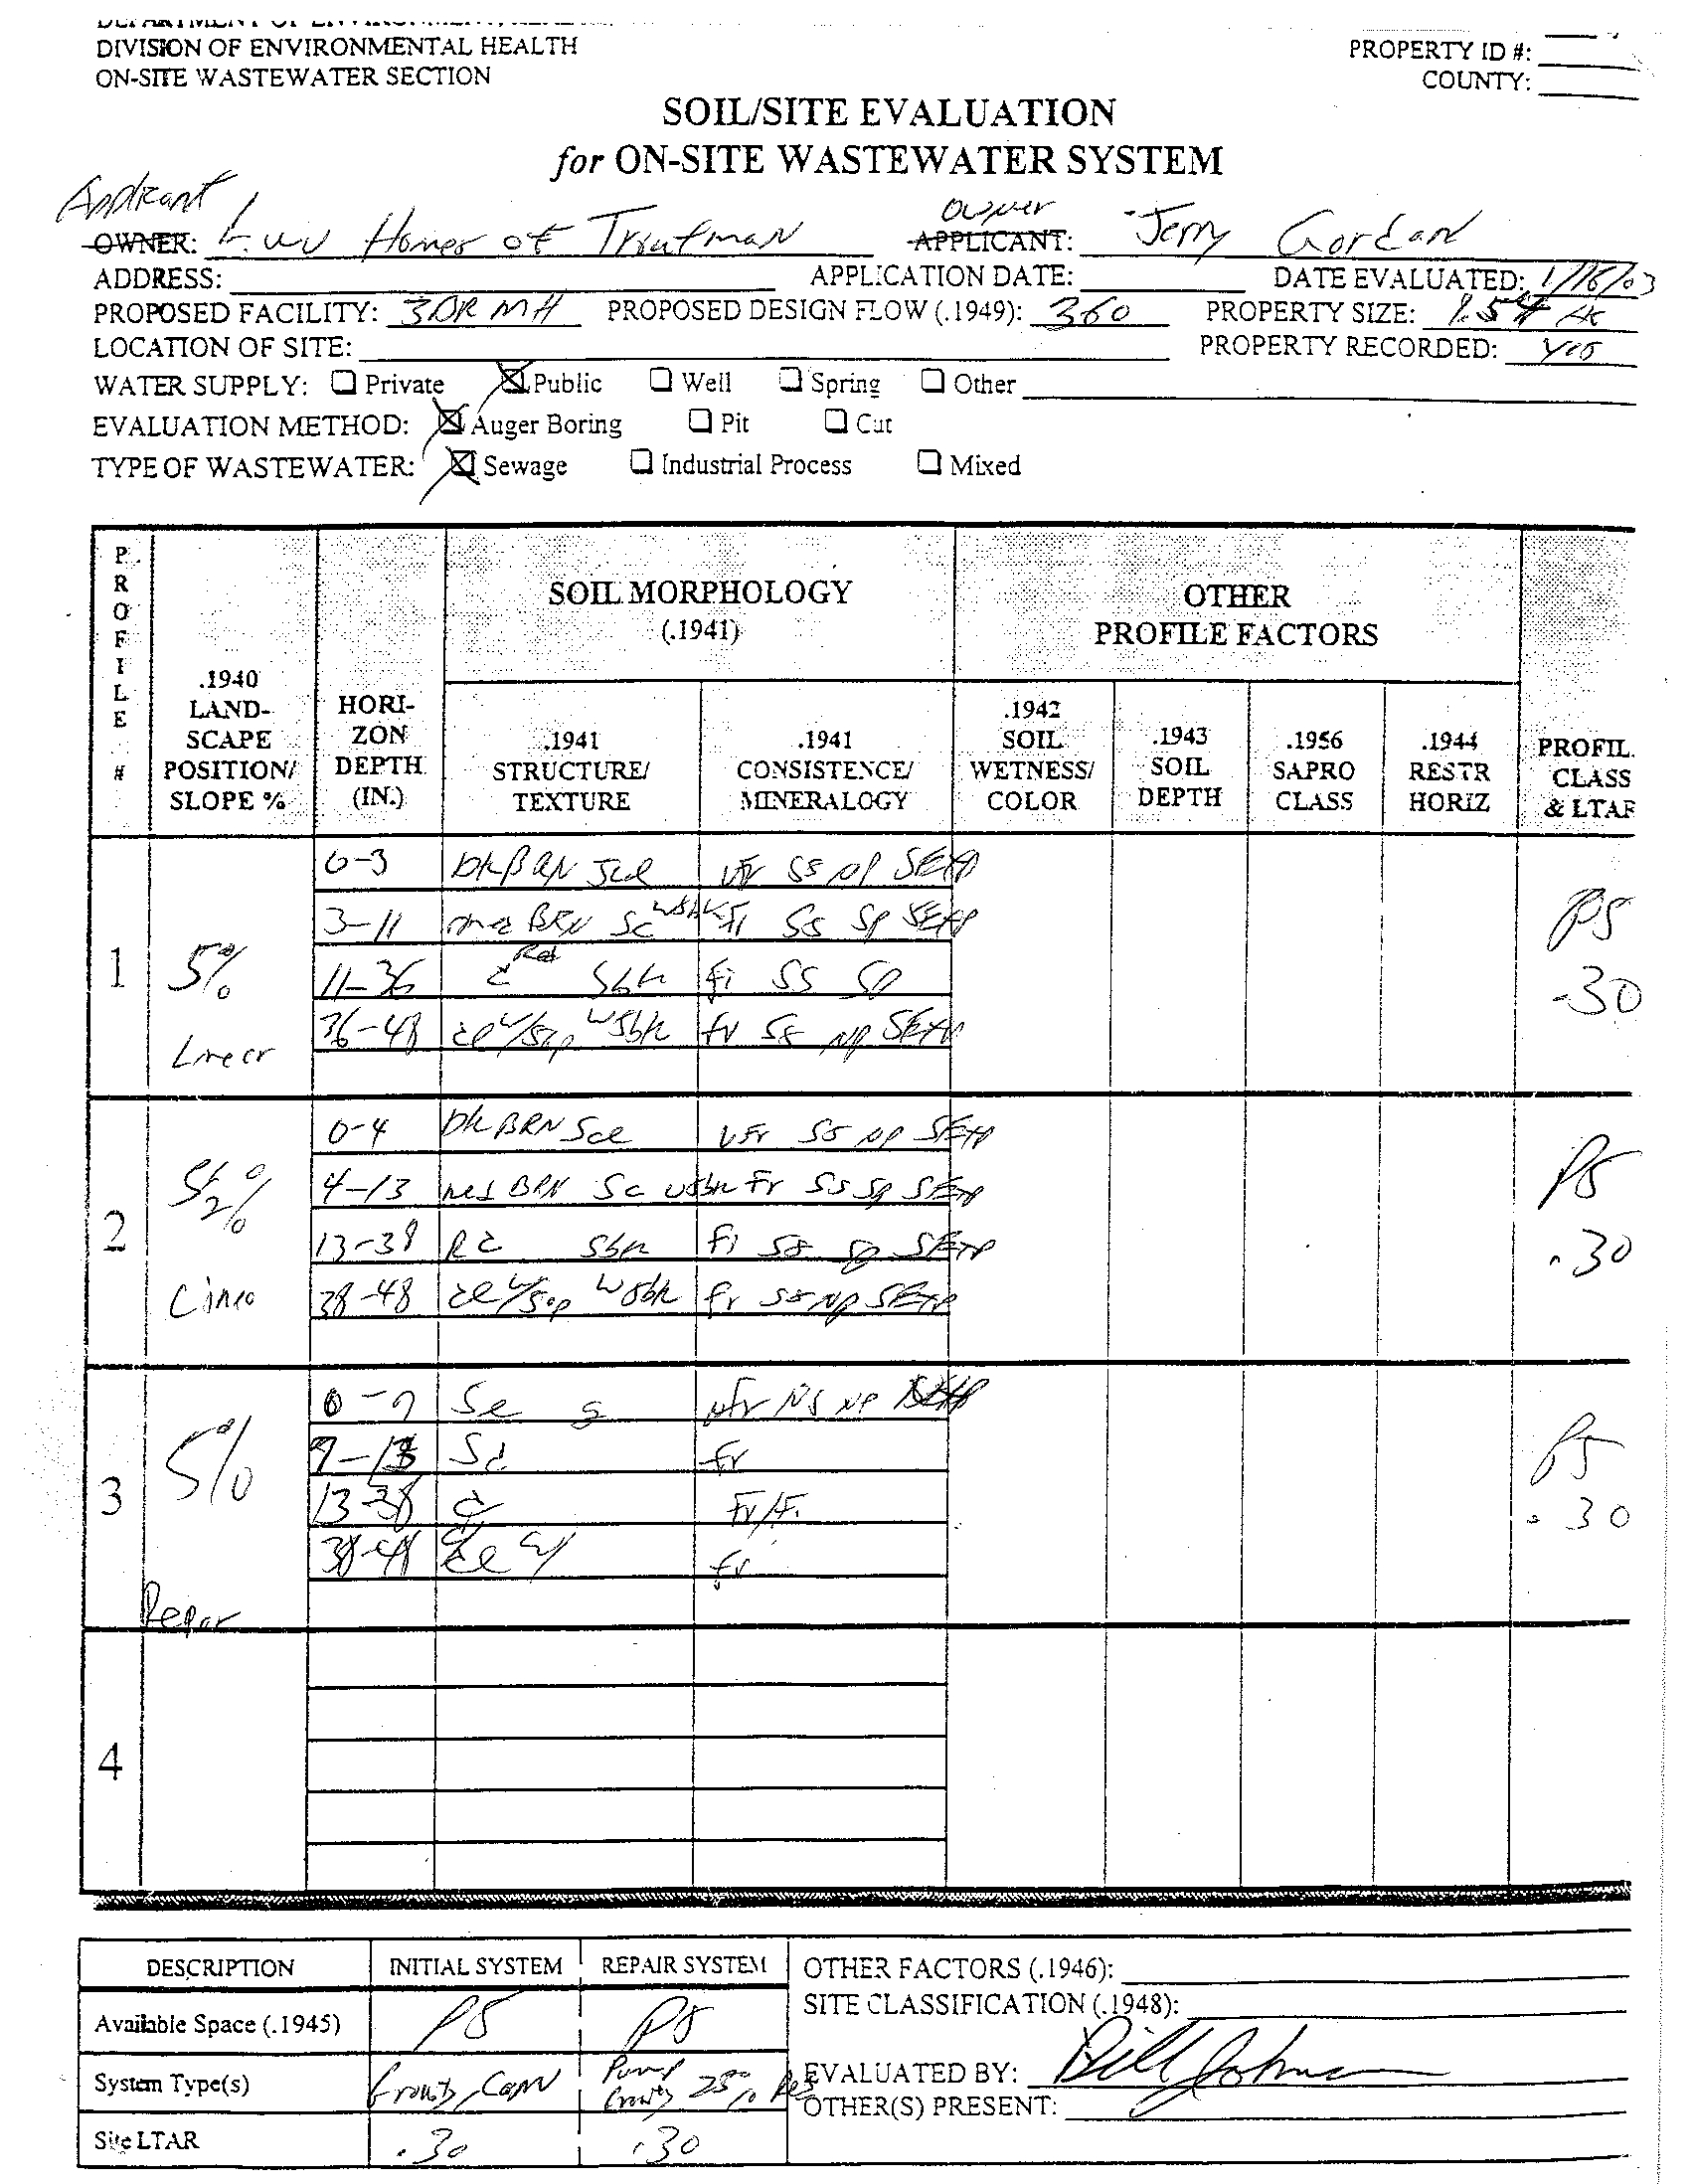 DIVISION OF ENVIRONMENTAL HEALTH
ON-SITE WASTEWATER SECTION
PROPERTY ID #:
COUNTY:
SOIL/SITE EVALUATION
for ON-SITE WASTEWATER SYSTEM
Applicant
OWNER: Luv Homes of Troutman
Owner
APPLICANT: Jerry Gordan
ADDRESS: APPLICATION DATE: DATE EVALUATED: 1/16/03
PROPOSED FACILITY: 3BR MH PROPOSED DESIGN FLOW (.1949): 360 PROPERTY SIZE: 1.54 Ac
LOCATION OF SITE: PROPERTY RECORDED: yes
WATER SUPPLY: Private Public Well Spring Other
EVALUATION METHOD: Auger Boring Pit Cut
TYPE OF WASTEWATER: Sewage Industrial Process Mixed
PROFILE #
.1940 LAND-SCAPE POSITION/ SLOPE %
HORI-ZON DEPTH (IN.)
SOIL MORPHOLOGY (.1941)
.1941 STRUCTURE/ TEXTURE
.1941 CONSISTENCE/ MINERALOGY
OTHER PROFILE FACTORS
.1942 SOIL WETNESS/ COLOR
.1943 SOIL DEPTH
.1956 SAPRO CLASS
.1944 RESTR HORIZ
PROFIL. CLASS & LTAR
1 5% Linear PS .30
0-3 Dk BRN Scl vfr SS NP SEXP
3-11 med BRN Sc wsbk fi SS SP SEXP
11-36 Red c Sbk fi SS SP
36-48 cl w/Sap wsbk fr SS NP SEXP
2 5 1/2 % PS .30
0-4 Dk BRN Scl vfr SS NP SEXP
4-13 med BRN Sc wsbk fr SS SP SEXP
13-38 R c Sbk fi SS SP SEXP
38-48 cl w/Sap wsbk fr SS NP SEXP
3 5% Repar PS .30
Sl g vfr NS NP
Sc fr
13-38 c Fr/Fi
38-48 cl fr
4
DESCRIPTION INITIAL SYSTEM REPAIR SYSTEM
Available Space (.1945) PS PS
System Type(s) Gravity, Conv Pump Gravity 25% Red
Site LTAR .30 .30
OTHER FACTORS (.1946):
SITE CLASSIFICATION (.1948):
EVALUATED BY: Bill Johnson
OTHER(S) PRESENT: